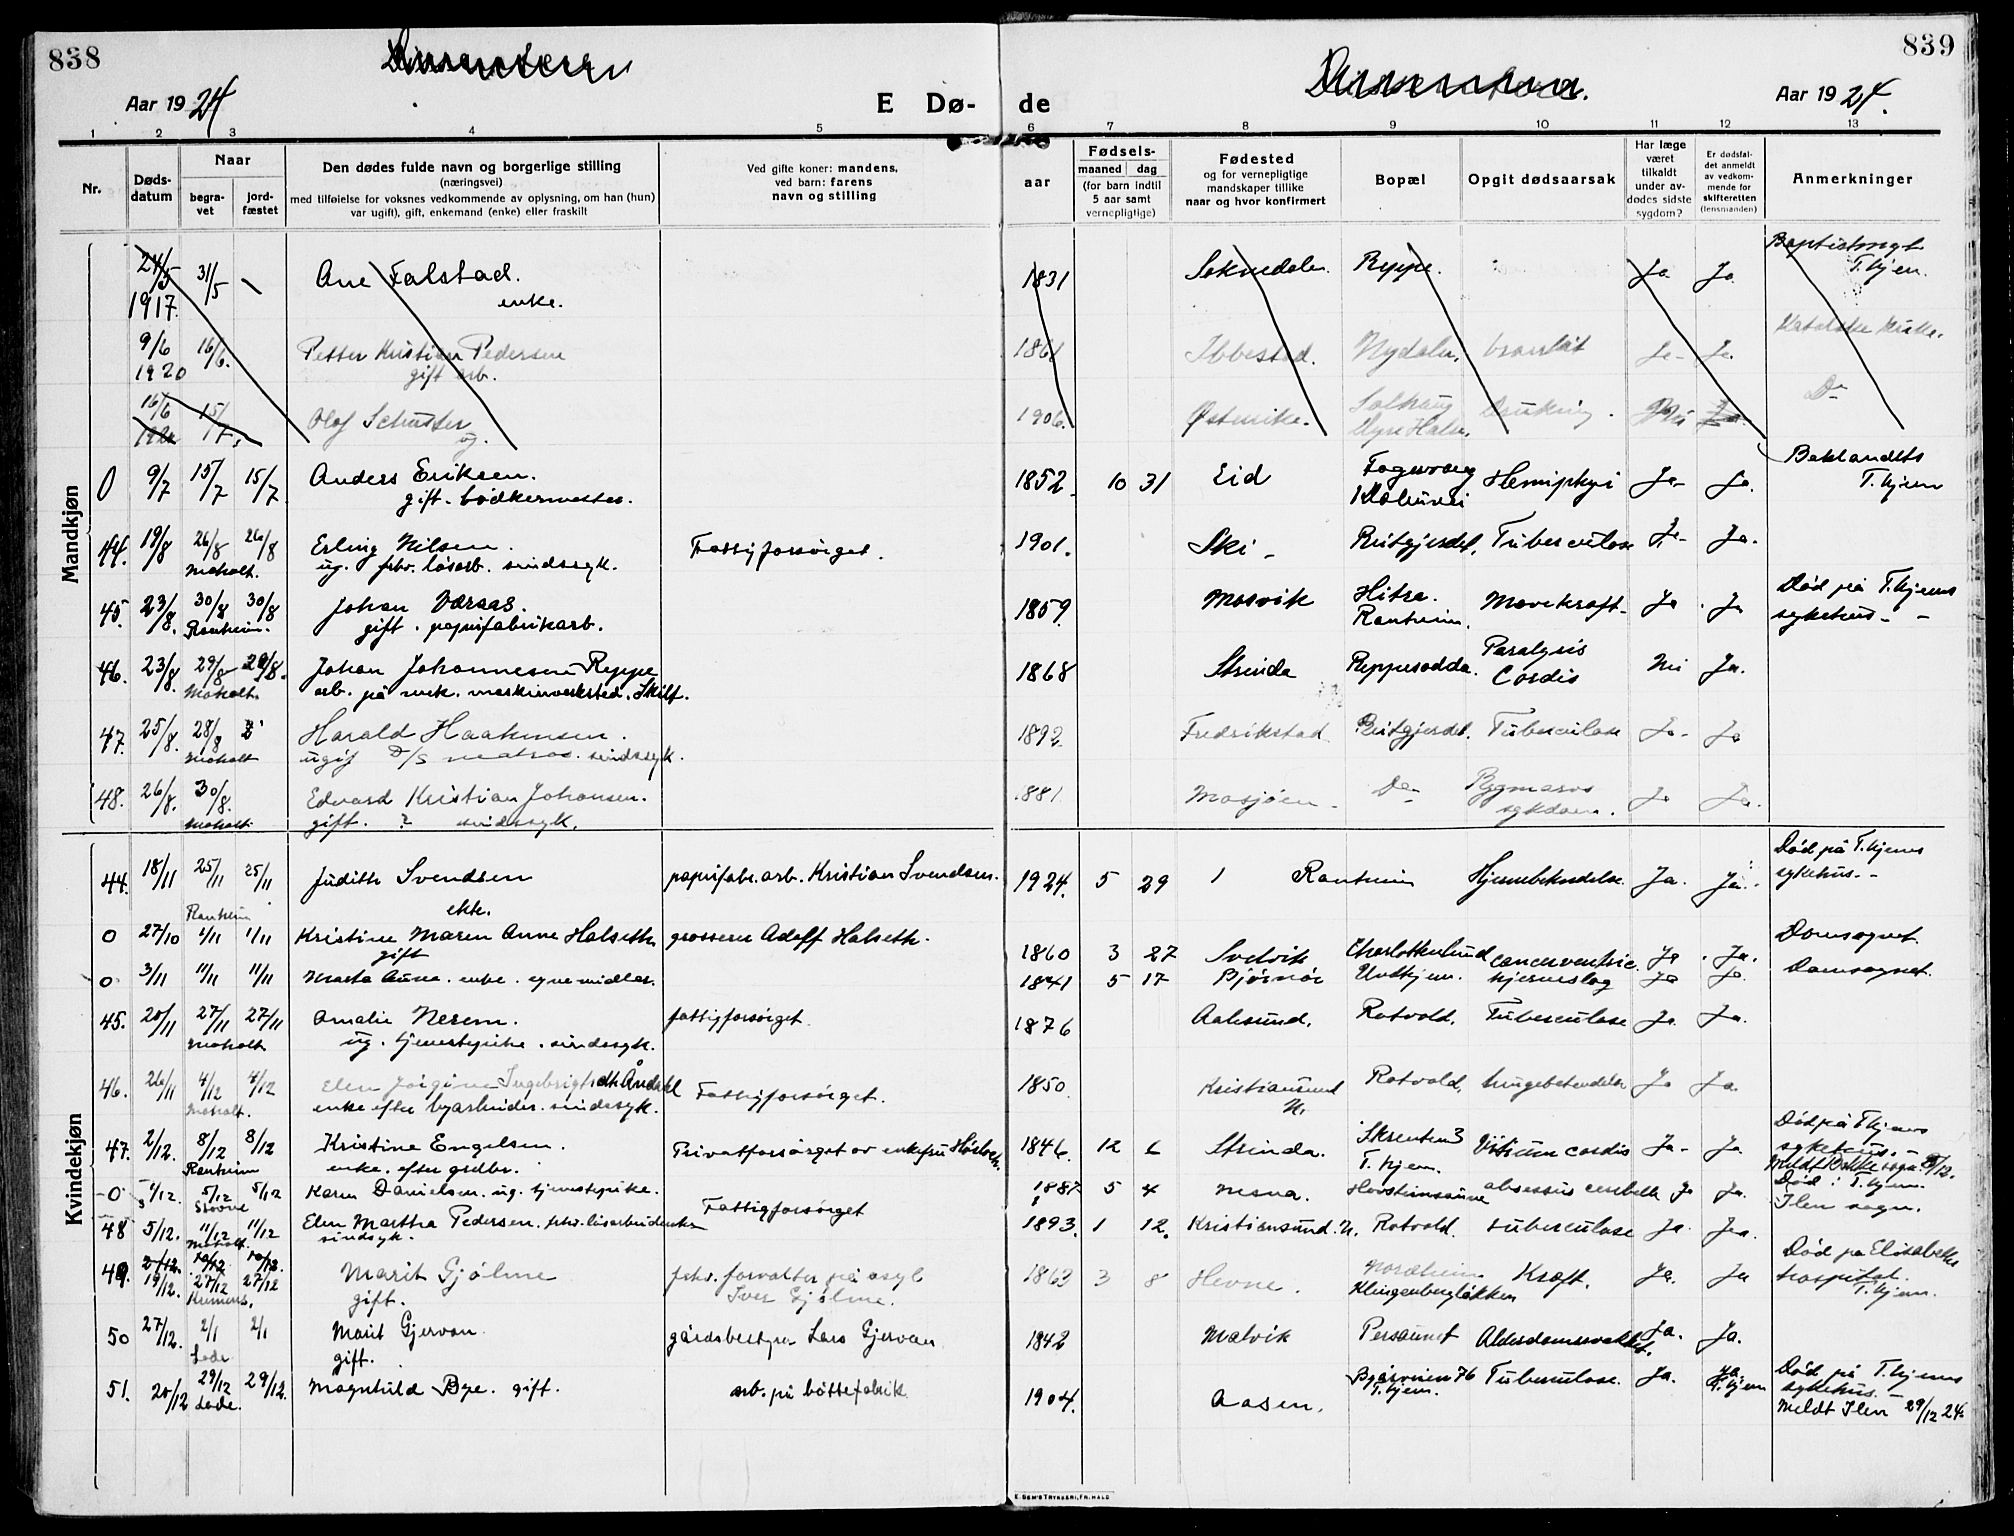 838
839
Aar 1924
E Dø-
de
Aar 1924.
1 2 3 4 5 6 7 8 9 10 11 12 13
Nr.
Døds-
datum
Naar
begra-
vet
jord-
fæstet
Den dødes fulde navn og borgerlige stilling
(næringsvei)
med tilføielse for voksnes vedkommende av oplysning, om han (hun)
var ugift), gift, enkemand (enke) eller fraskilt
Ved gifte koner: mandens,
ved barn: farens
navn og stilling
aar
Fødsels-
maaned dag
(for barn indtil
5 aar samt
vernepligtige)
Fødested
og for vernepligtige
mandskaper tillike
naar og hvor konfirmert
Bopæl
Opgit dødsaarsak
Har læge
været
tilkaldt
under av-
dødes sidste
sygdom?
Er dødsfal-
det anmeldt
av vedkom-
mende for
skifteretten
(lensmanden)
Anmerkninger
Mandkjøn
24/5 31/5 Ane Falstad. 1831 Soknedalen Reppe. Ja Ja
1917. enke. T.hjem.
9/6 16/6. Petter Kristian Pedersen 1861 Ibbestad. Nydalen. Ja- Ja.
1920 gift arb. Katolske kirke.
16/6 15/7. Olaf Schuster 1906. Østerrike. Drukning. Nei Do
ug.
0 9/7 15/7 15/7 Anders Eriksen. 1852. 10 31 Eid Ja- Ja. Baklandets
gift. bødkermester. T.hjem
44. 19/8 26/8 26/8 Erling Nilsen. Fattigforsørget. 1901. Ski - Reitgjerdet. Tuberculose Ja- Ja.
Moholt. ug. fhv. løsarb. sindssyk.
45. 23/8. 30/8 30/8 Johan Væraas. 1859. Mosvik Hitra. Mavekraft. Ja. Ja Død på T.hjems
Ranheim. gift. papirfabrikarb. Ranheim. sykehus. -
46. 23/8 29/8 29/8. Johan Johannesen Reppe 1868 Strinda Reppesodda. Paralysis Nei Ja.
Moholt. arb. på mek. maskinverksted. Skilt. Cordis
47. 25/8. 28/8 Harald Haakensen. 1892. Fredrikstad Reitgjerdet. Tuberculose Ja- Ja
Moholt ugift D/S matros. sindssyk.
48. 26/8. 30/8. Edvard Kristian Johansen. 1881. Mosjøen - Do Rygmarvs Ja Ja.
Moholt. gift. ? sindssyk. sykdom.
Kvindekjøn
44. 18/11 25/11 25/11 Judith Svendsen papirfabr.arb. Kristian Svendsen. 1924. 5 29 1 Ranheim Hjernebetendelse Ja. Ja. Død på T.hjems
Ranheim ekte. sykehus. -
0 27/10 1/11 1/11 Kristine Maren Anne Halseth grosserer Adolf Halseth. 1860 3 27 Svelvik Charlottenlund cancer ventric. Ja. Ja. Domsognet.
gift
0 3/11 11/11 11/11 Marta Aune. enke. egne midler. 1841 5 17 Bjørnør Utdhjem. hjerneslag Ja Ja. Domsognet.
45. 20/11 27/11 27/11 Amalie Nerem. fattigforsørget. 1876 Aalesund. Rotvold. Tuberculose Ja. Ja.
Moholt ug. tjenestepike. sindssyk.
46. 26/11 4/12 4/12 Elen Jørgine Ingebrigtsdtr. Åndahl Fattigforsørget. 1850. Kristiansund Rotvold. lungebetendelse Ja Ja.
Moholt. enke efter byarbeider. sindssyk. N.
47. 2/12. 8/12 8/12 Kristine Engelsen. Privatforsørget av enkefru 1846. 12 6 Strinda. Vitium cordis Ja- Ja. Død på T.hjems
Ranheim enke. efter grdbr. T.hjem. sykehus. -
0 1/12. 5/12 5/12 Karen Danielsen. ug. tjenestepike. 1887. 5 4 Nesna. absessus cerebelli Ja Ja. Død i T.hjem.
Ilen sogn.
48 5/12. 11/12 11/12 Elen Martha Pedersen. fhv. løsarbeiderske Fattigforsørget 1893. 1 12. Kristiansund. N. Rotvold. tuberculose Ja. Jaa.
Moholt. sindsyk.
49. 19/12. 27/12 27/12 Marit Gjølme fhv. forvalter på asyl 1863 3 8 Hevne. Kræft. Ja. Ja Død på Elisabeths
gift. Iver Gjølme. Klingenbergløkken hospital.
T.hjem.
50 27/12. 2/1 2/1 Marit Gjervan gårdsbestyrer Lars Gjervan 1842 Malvik Persaunet Alderdomssvakhet. Ja. Ja.
Lade gift.
51. 20/12 29/12 29/12. Magnhild Bye. gift. arb. på bøttefabrik 1904. Aasen. T.hjem. Tuberculose. Ja. Ja Død på T.hjems
Lade. T.hjem sykehus. -
Meldt Ilen 29/12 24.
E. SEM'S TRYKKERI, FR.HALD